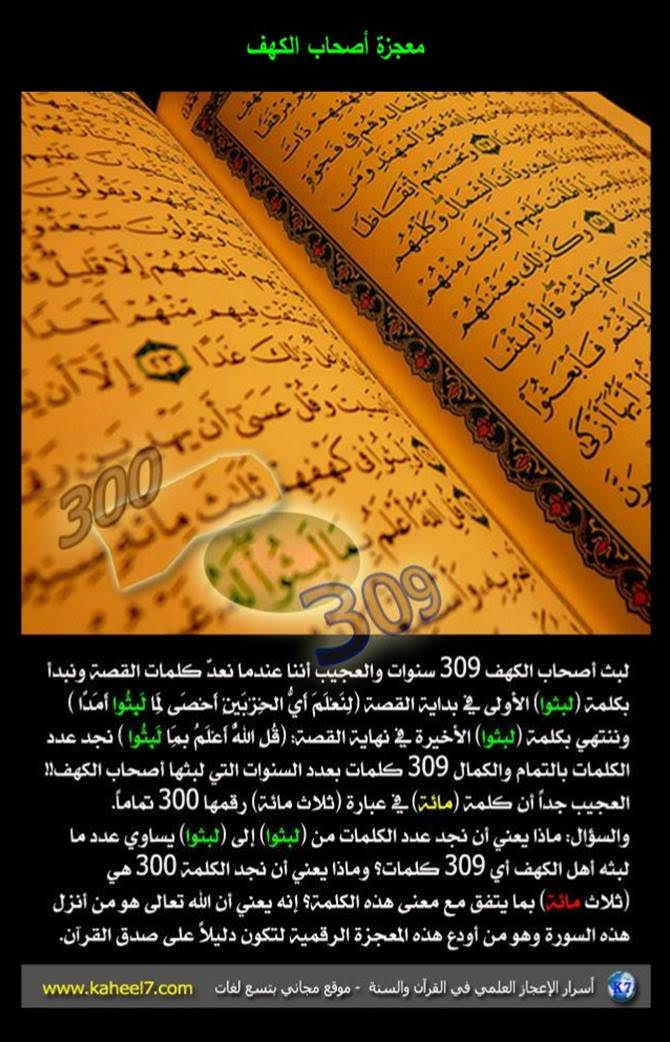 معجزة أصحاب الكهف
ذَاتَ
الشِّمَالِ وَهُمْ فِي فَجْوَةٍ
فَهُوَ الْمُهْتَدِ وَمَن
وَتَحْسَبُهُمْ أَيْقَاظًا
وَذَاتَ الشِّمَالِ وَكَلْبُهُم
عَلَيْهِمْ لَوَلَّيْتَ مِنْهُمْ
وَكَذَلِكَ بَعَثْنَهُمْ
كَمْ لَبِثْتُمْ قَالُوا لَبِثْنَا
لَبِثْتُمْ فَابْعَثُوا
أَيُّهَا أَزْكَى
وَيَقُولُونَ
وَيَقُولُونَ سَبْعَةٌ
مَّا يَعْلَمُهُمْ إِلَّا قَلِيلٌ
فِيهِم مِّنْهُمْ أَحَدًا
ذَلِكَ غَدًا ٢٣ إِلَّا أَن
وَقُلْ عَسَى أَن يَهْدِيَنِ
وَلَبِثُوا فِي كَهْفِهِمْ ثَلَثَ مِائَةٍ سِنِينَ
قُلِ اللَّهُ أَعْلَمُ بِمَا لَبِثُوا لَهُ
300
309
لبث أصحاب الكهف 309 سنوات والعجيب أننا عندما نعدّ كلمات القصة ونبدأ
بكلمة (لبثوا) الأولى في بداية القصة (لِنَعْلَمَ أَيُّ الحِزْبَيْنِ أَحْصَى لِمَا لَبِثُوا أَمَدًا )
وننتهي بكلمة (لبثوا) الأخيرة في نهاية القصة: (قُلِ اللهُ أَعْلَمُ بِمَا لَبِثُوا ) نجد عدد
الكلمات بالتمام والكمال 309 كلمات بعدد السنوات التي لبثها أصحاب الكهف!!
العجيب جداً أن كلمة (مائة) في عبارة (ثلاث مائة) رقمها 300 تماماً.
والسؤال: ماذا يعني أن نجد عدد الكلمات من (لبثوا) إلى (لبثوا) يساوي عدد ما
لبثه أهل الكهف أي 309 كلمات؟ وماذا يعني أن نجد الكلمة 300 هي
(ثلاث مائة) بما يتفق مع معنى هذه الكلمة؟ إنه يعني أن الله تعالى هو من أنزل
هذه السورة وهو من أودع هذه المعجزة الرقمية لتكون دليلاً على صدق القرآن.
K7 أسرار الإعجاز العلمي في القرآن والسنة - موقع مجاني بتسع لغات www.kaheel7.com